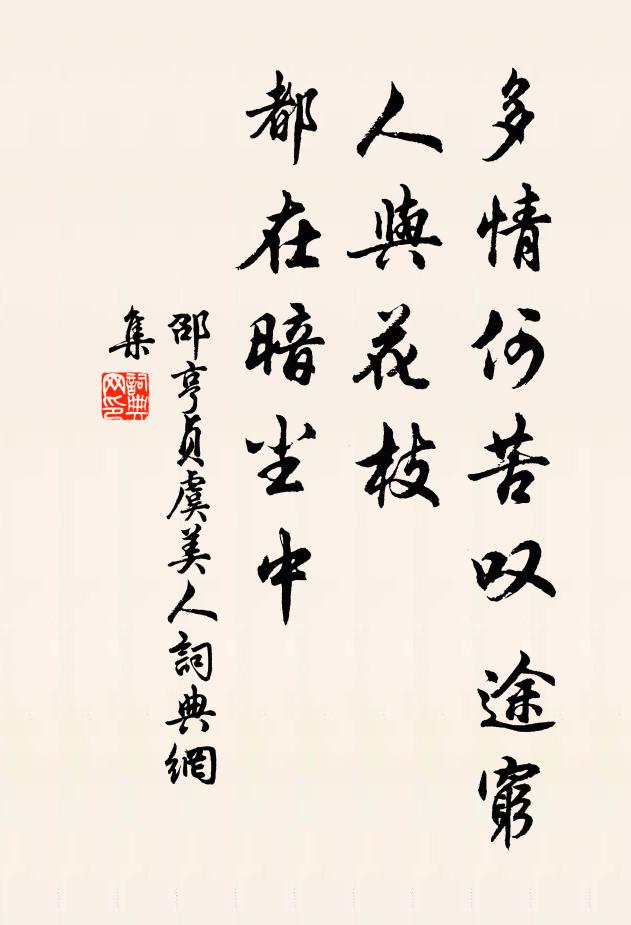 多情何苦叹途窮
人與花枝
都在暗尘中
邵亨貞虞美人詞典網
集
詞典
网印